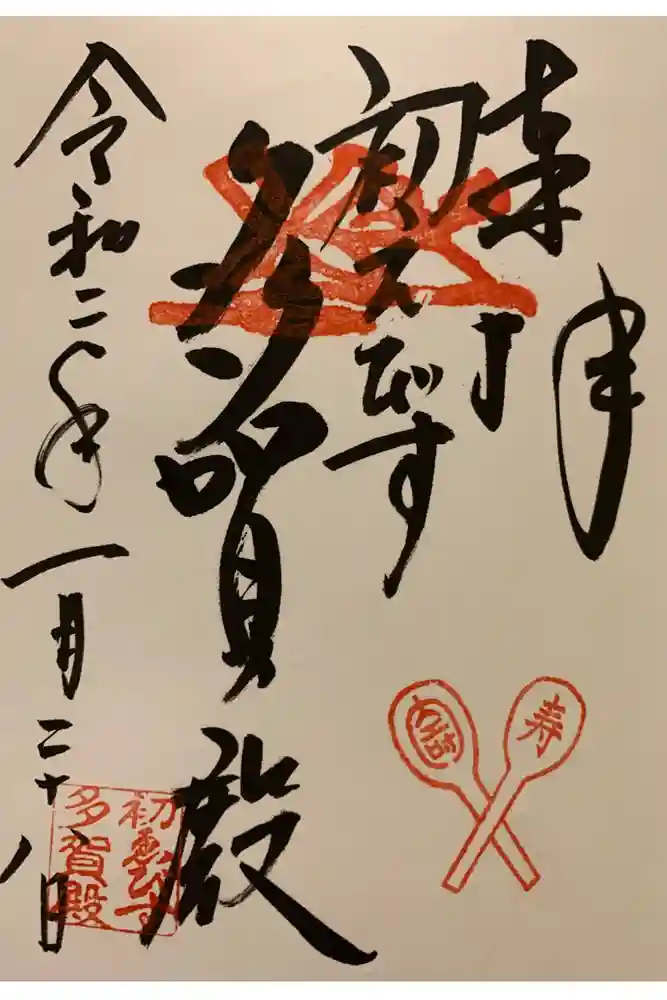 奉拝
初ゑびす
多賀殿
令和二年一月二十八日
寿
初恵びす
多賀殿